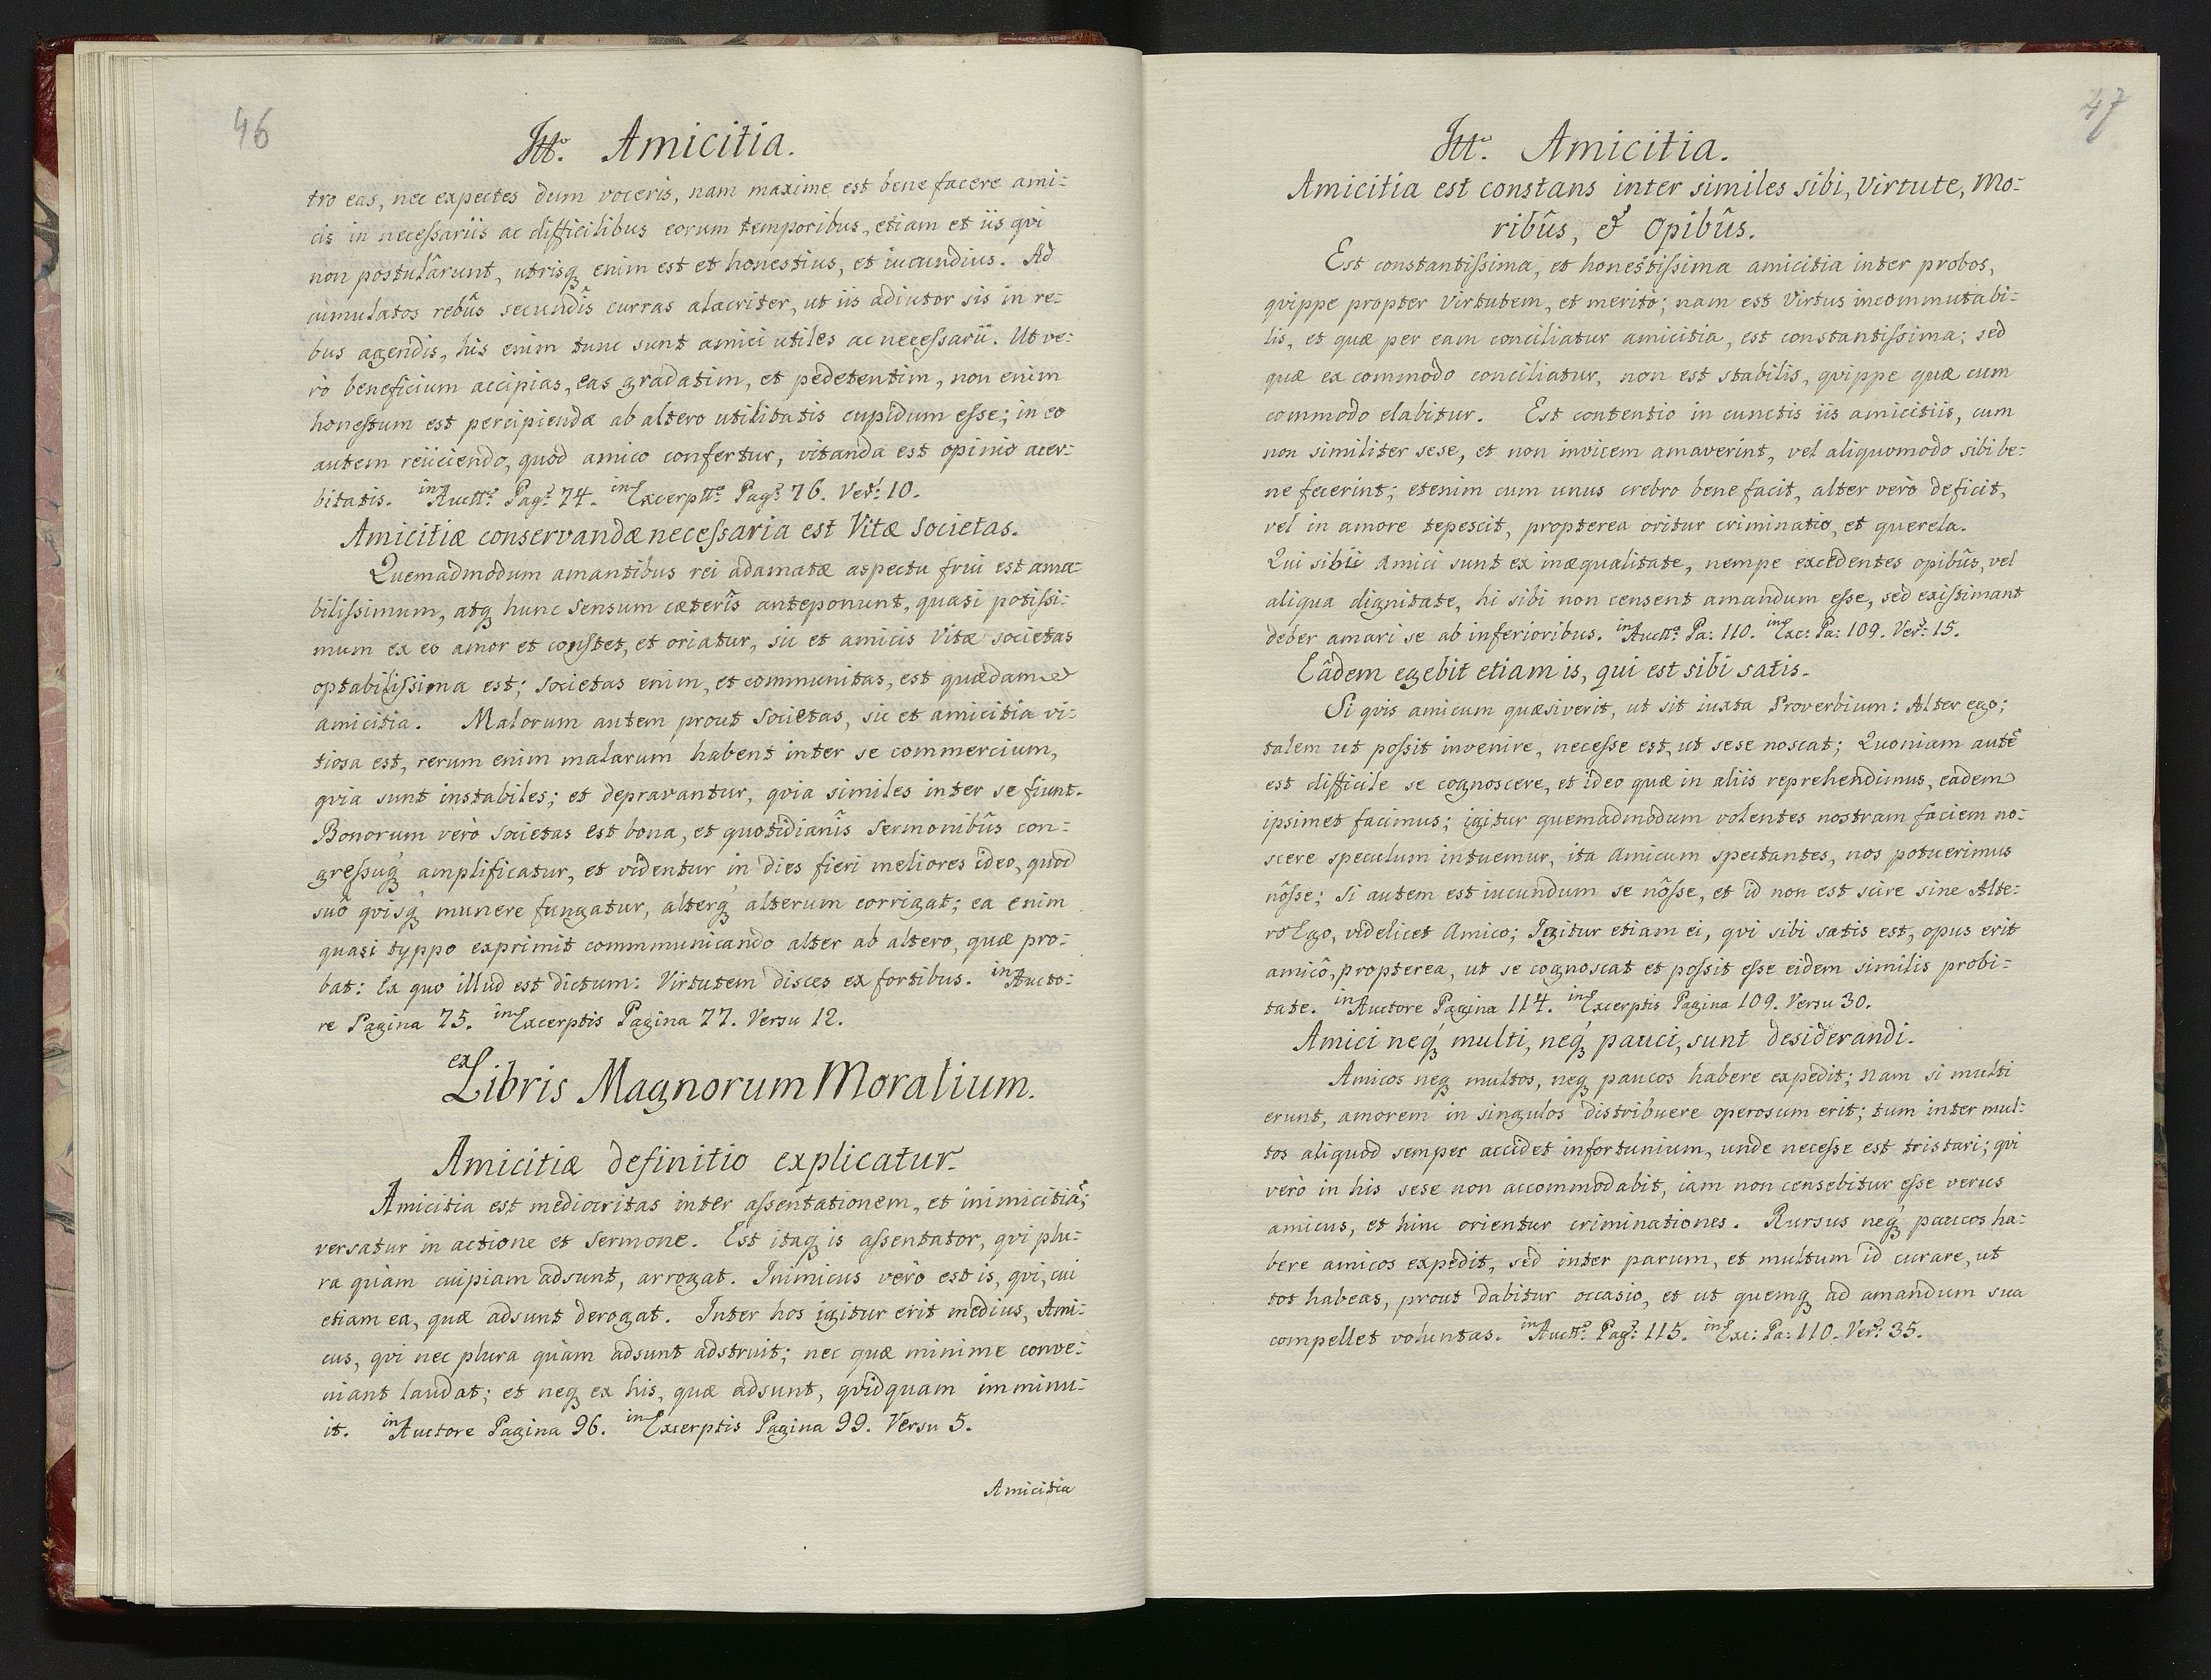 46
Amicitia.
tro eas, nec expectes dum voceris, nam maxime est bene facere ami:
cis in neceſsariis ac difficilibus eorum temporibus, etiam et iis qvi
non postulârunt, utrisq enim est et honestius, et iucundius. Ad
cumulatos rebûs secundîs curras alacriter, ut iis adiutor sis in re:
bus agendis, his enim tunc sunt amici utiles ac neceſsarii. Ut ve:
rò beneficium accipias, eas gradatim, et pedetentim, non enim
honeſtum est percipiendæ ab altero utilitatis cupidum eſse; in eo
autem reiiciendo, quod amico confertur, vitanda est opinio acer:
bitatis. in Auctt: Pag: 74. in Excerptt: Pag: 76. Ver: 10.
Amicitiæ conservandæ neceſsaria est Vitæ Societas.
Quemadmodum amantibus rei adamatæ aspectu frui est ama:
biliſsimum, atq hunc sensum cæterîs anteponunt, quasi potiſsi:
mum ex eo amor et conſtet, et oriatur, sic et amicis Vitæ societas
optabiliſsima est; societas enim, et communitas, est quædam
amicitia. Malorum autem prout Societas, sic et amicitia vi:
tiosa est, rerum enim malarum habent inter se commercium,
qvia sunt instabiles; et depravantur, qvia similes inter se fiunt.
Bonorum verò societas est bona, et quotidianîs sermonibûs con:
greſsuq amplificatur, et videntur in dies fieri meliores ideo, quod
suô qvisq munere fungatur, alterq alterum corrigat; ea enim
quasi typpo exprimit commmunicando alter ab altero, quæ pro:
bat: Ex quo illud est dictum: Virtutem disces ex fortibus. in Aucto:
re Pagina 75. in Excerptis Pagina 77. Versu 12.
ex Libris Magnorum Moralium.
Amicitiæ definitio explicatur.
Amicitia est mediocritas inter aſsentationem, et inimicitiã;
versatur in actione et sermone. Est itaq is aſsentator, qvi plu:
ra quàm cuipiam adsunt, arrogat. Inimicus verò est is, qvi, cui
etiam ea, quæ adsunt derogat. Inter hos igitur erit medius, Ami:
cus, qvi nec plura quàm adsunt adstruit; nec quæ minime conve:
niant laudat; et neq ex his, quæ adsunt, qvidquam imminu:
it. in Auctore Pagina 96. in Excerptis Pagina 99. Versu 5.
Amicitia
47
Amicitia.
Amicitia est constans inter similes sibi, Virtute, Mo:
ribûs, & Opibûs.
Est constantiſsima, et honestiſsima amicitia inter probos,
qvippe propter Virtutem, et meritò; nam est Virtus incommutabi:
lis, et quæ per eam conciliatur amicitia, est constantiſsima; sed
quæ ex commodo conciliatur, non est stabilis, qvippe quæ cum
commodo elabitur. Est contentio in cunctis iis amicitiis, cum
non similiter sese, et non invicem amaverint, vel aliquomodo sibi be:
ne fecerint; etenim cum unus crebro bene facit, alter verò deficit,
vel in amore tepescit, propterea oritur criminatio, et querela.
Qui sibii Amici sunt ex inæqualitate, nempe excedentes opibûs, vel
aliqua dignitate, hi sibi non censent amandum eſse, sed exiſtimant
deber amari se ab inferioribus. in Auctt: Pa: 110. in Exc: Pa: 109. Ver: 15.
Eâdem egebit etiam is, qui est sibi satis.
Si qvis amicum quæsiverit, ut sit iuxta Proverbium: Alter ego;
talem ut poſsit invenire, neceſse est, ut sese noscat; Quoniam autē
est difficile se cognoscere, et ideo quæ in aliis reprehendimus, eadem
ipsimet facimus; igitur quemadmodum volentes nostram faciem no:
scere speculum intuemur, ita Amicum spectantes, nos potuerimus
nôſse; Si autem est iucundum se nôſse, et id non est scire sine Alte:
rô Ego, videlicet Amico; Igitur etiam ei, qvi sibi satis est, opus erit
amicô, propterea, ut se cognoscat et poſsit eſse eidem similis probi:
tate. in Auctore Pagina 114. in Excerptis Pagina 109. Versu 30.
Amici neq multi, neq pauci, sunt desiderandi.
Amicos neq multos, neq paucos habere expedit; nam si multi
erunt, amorem in singulos distribuere operosum erit; tum inter mul:
tos aliquod semper accidet infortunium, unde neceſse est tristari; qvi
verò in his sese non accommodabit, iam non censebitur eſse verus
amicus, et hinc orientur criminationes. Rursus neq paucos ha:
bere amicos expedit, sed inter parum, et multum id curare, ut
tot habeas, prout dabitur occasio, et ut quemq ad amandum sua
compellet voluntas. in Auctt: Pag: 115. in Exc: Pa: 110. Ver: 35.